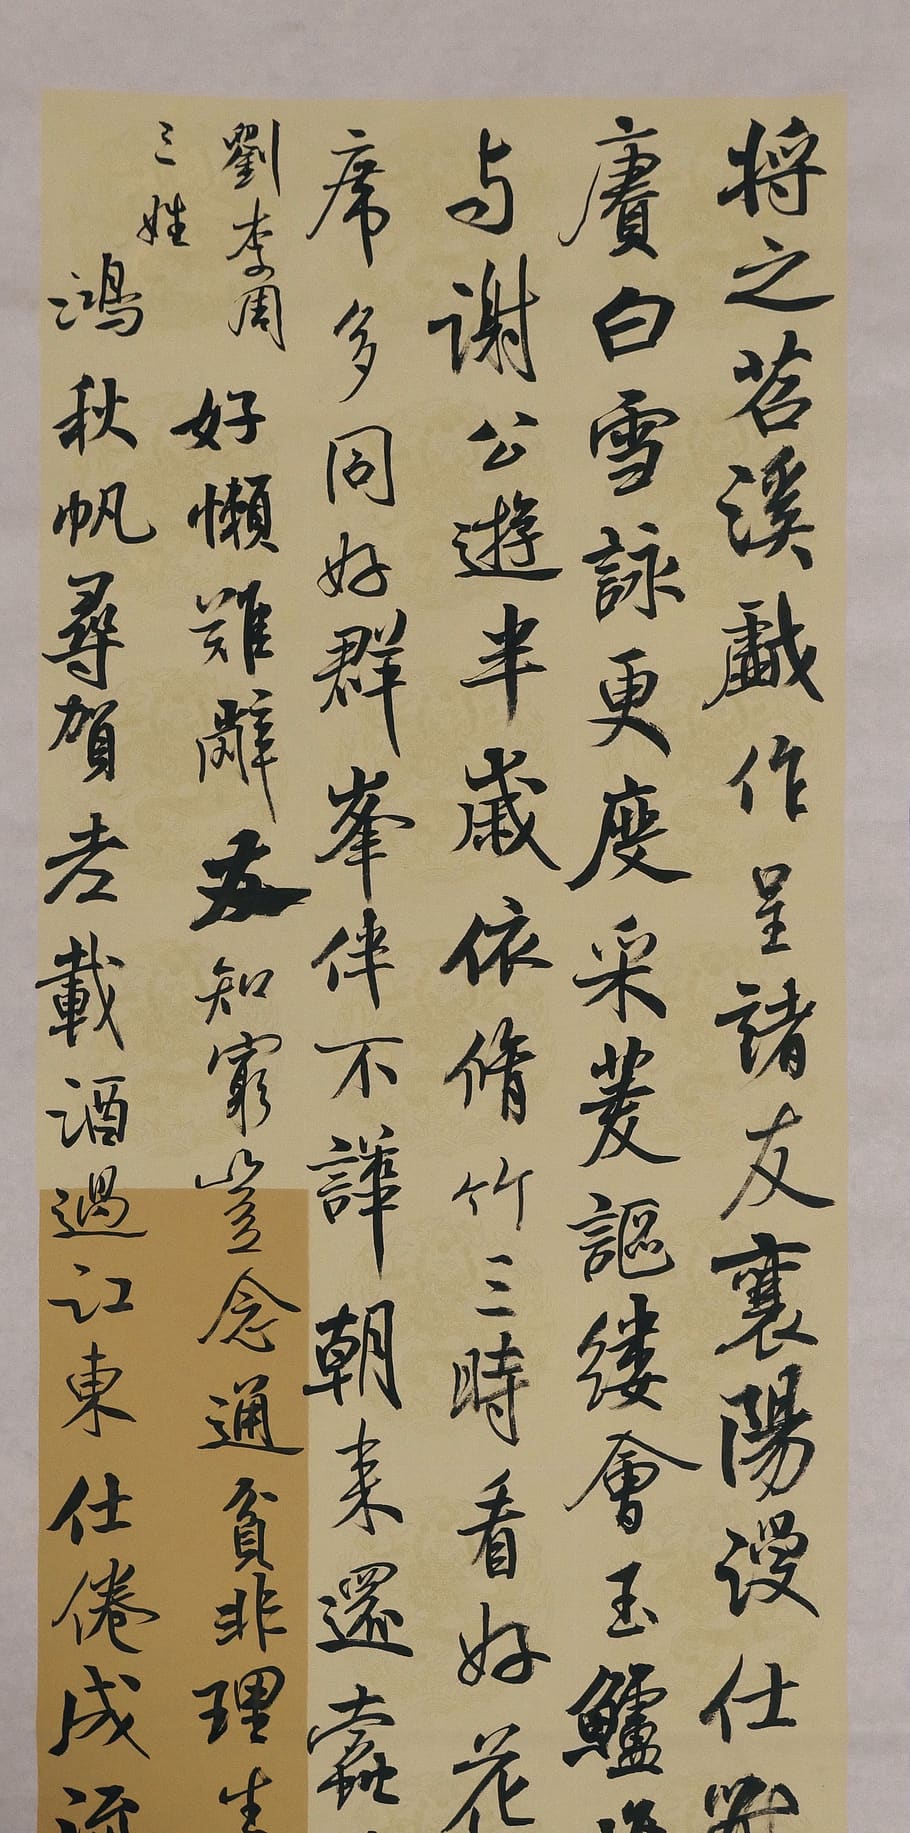 将之苕溪戲作呈諸友襄陽漫仕
賡白雪詠更度采菱謳縷會玉鱸
与謝公遊半歲依脩竹三時看好花
席多同好群峯伴不譁朝来還蠹
劉李周
三姓
好懶難辭友知窮豈念通貧非理生
鴻秋帆尋賀老載酒過江東仕倦成流